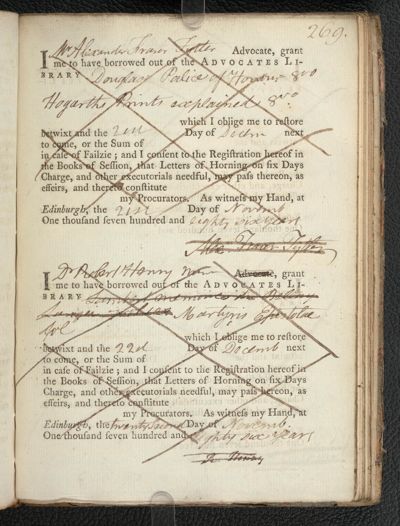 269.
I Mr Alexander Fraser Tytler Advocate, grant
me to have borrowed out of the ADVOCATES LI-
BRARY Douglas Palice of Honour 8vo
Hogarths Prints explained 8vo.
which I oblige me to reſtore
betwixt and the 21st Day of Decem next
to come, or the Sum of
in caſe of Failzie; and I conſent to the Regiſtration hereof in
the Books of Seſſion, that Letters of Horning on ſix Days
Charge, and other executorials needful, may paſs thereon, as
effeirs, and thereto conſtitute
my Procurators. As witneſs my Hand, at
Edinburgh, the 21st Day of Novemb
One thouſand ſeven hundred and eighty six years
Alex Fraser Tytler
I Dr Robert Henry Advocate, grant
me to have borrowed out of the ADVOCATES LI-
BRARY
Martyris Epistolae
fol
which I oblige me to reſtore
betwixt and the 22d Day of Decemb next
to come, or the Sum of
in caſe of Failzie; and I conſent to the Regiſtration hereof in
the Books of Seſſion, that Letters of Horning on ſix Days
Charge, and other executorials needful, may paſs hereon, as
effeirs, and thereto conſtitute
my Procurators. As witneſs my Hand, at
Edinburgh, the twenty second Day of Novemb.
One thouſand ſeven hundred and Eighty six years
R. Henry